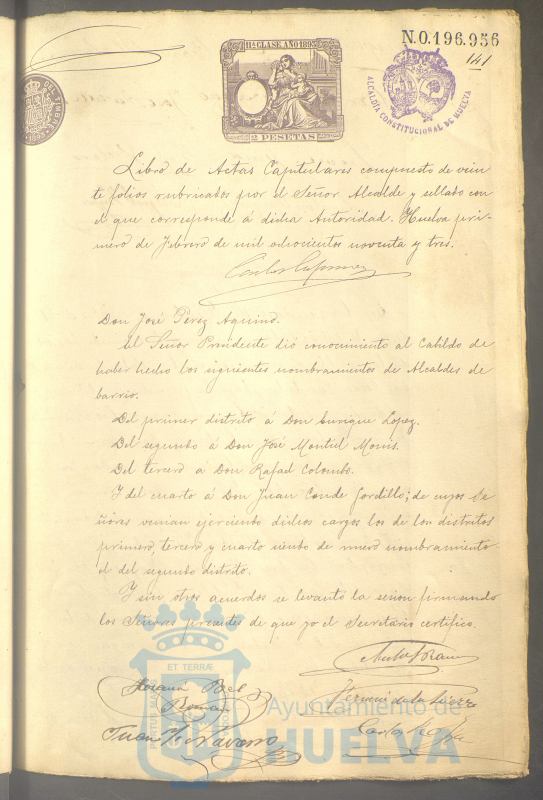 11ª CLASE AÑO 1893
2 PESETAS
N.0.196.956
141
ALCALDÍA CONSTITUCIONAL DE HUELVA
Libro de Actas Capitulares compuesto de vein
te folios rubricados por el Señor Alcalde y sellado con
el que corresponde á dicha Autoridad. Huelva pri-
mero de Febrero de mil ochocientos noventa y tres.
Don José Pérez Aquino.
El Señor Presidente dió conocimiento al Cabildo de
haber hecho los siguientes nombramientos de Alcaldes de
barrio.
Del primer distrito á Don Enrique Lopez.
Del segundo á Don José Montiel
Del tercero á Don Rafael Colombo.
Y del cuarto á Don Juan Conde Gordillo; de cuyos Se
ñores venian ejerciendo dichos cargos los de los distritos
primero, tercero y cuarto siendo de nuevo nombramiento
el del segundo distrito.
Y sin otros acuerdos se levantó la sesion firmando
los Señores presentes de que yo el Secretario certifico.
Roman
Juan Navarro
ET TERRÆ
Ayuntamiento de
HUELVA